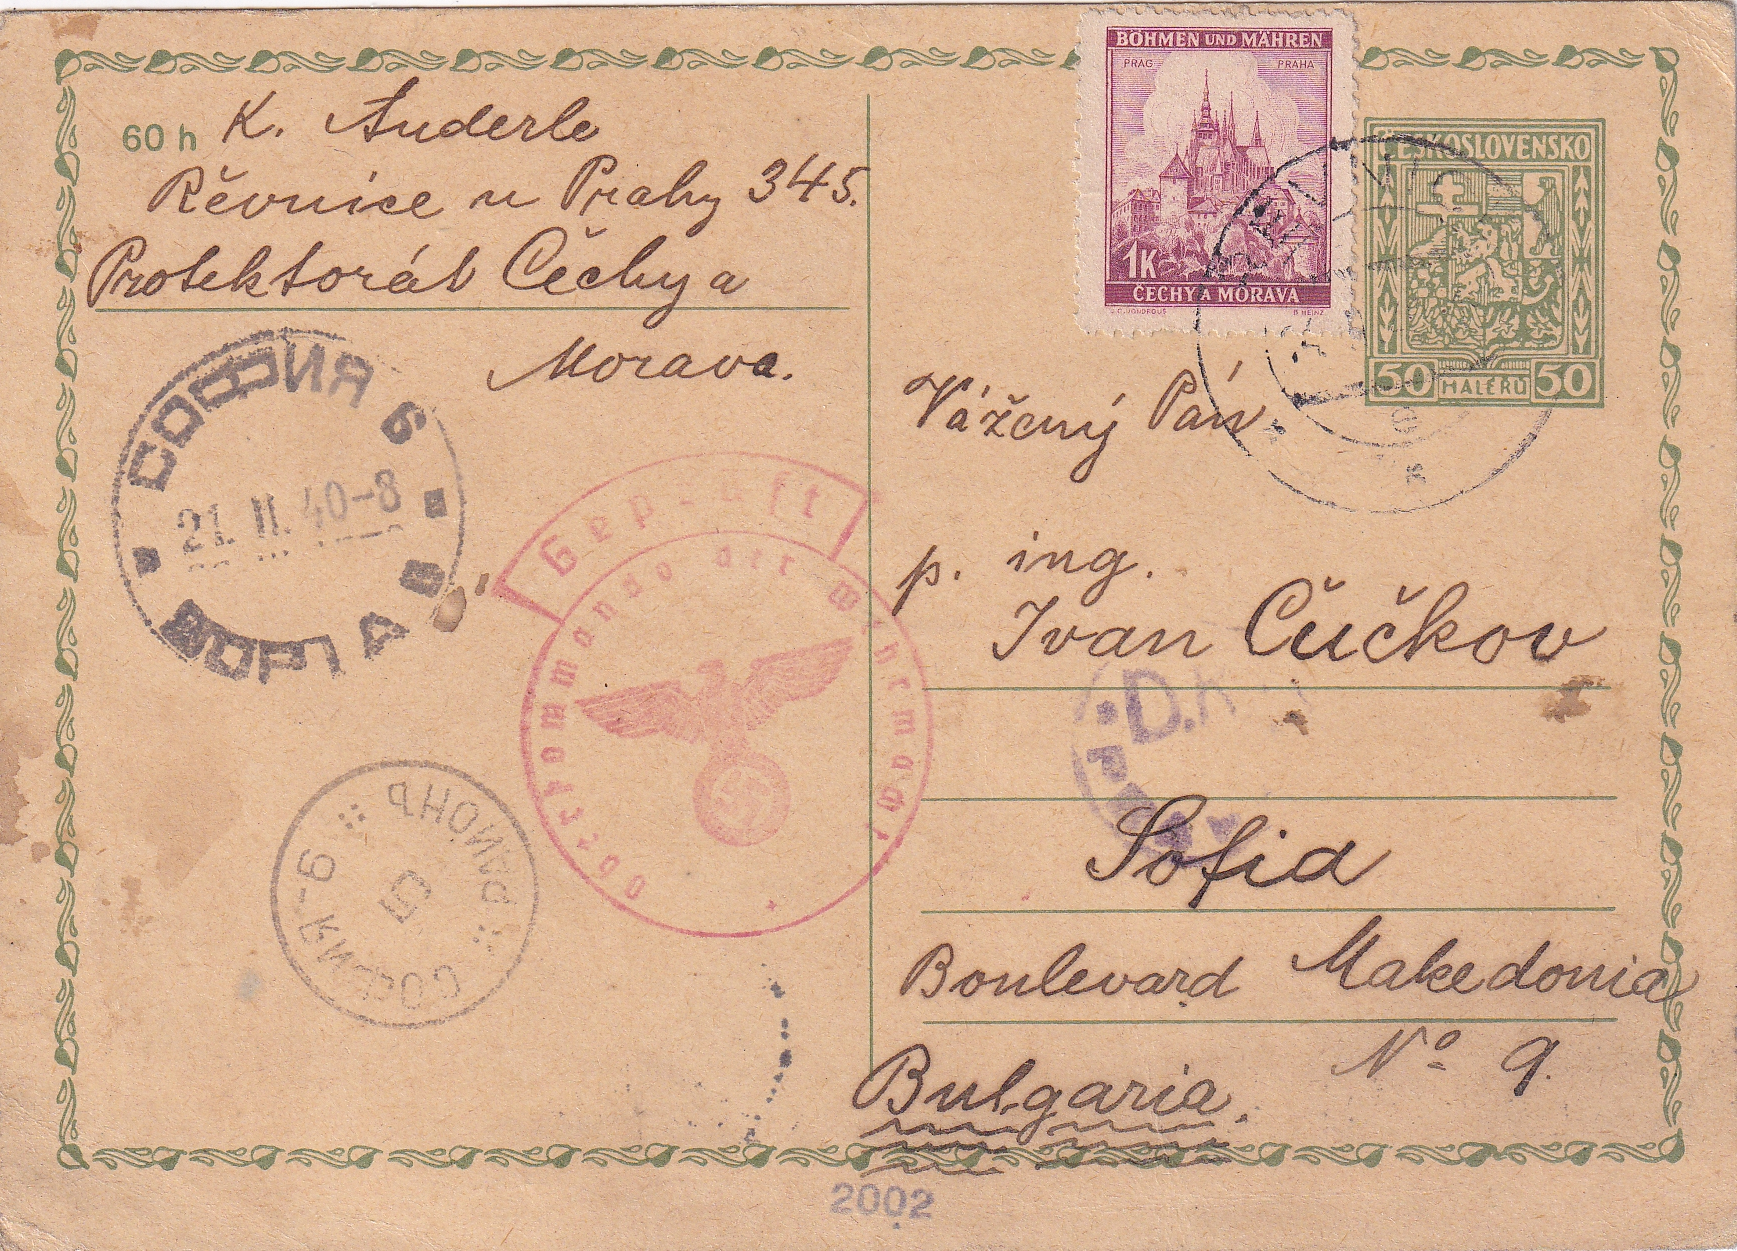 60 h
K. Anderle
Řevnice u Prahy 345.
Protektorát Čechy a
Morava.
BÖHMEN UND MÄHREN
PRAG PRAHA
1K
ČECHY A MORAVA
ČESKOSLOVENSKO
50 HALÉŘŮ 50
СОФИЯ 6
21. II. 40-8
Geprüft
Oberkommando der Wehrmacht
Vážený Pán
p. ing.
Ivan Čučkov
Sofia
Boulevard Makedonia
Nº 9.
Bulgaria.
СОФИЯ-6
РАЙОНЪ
2002